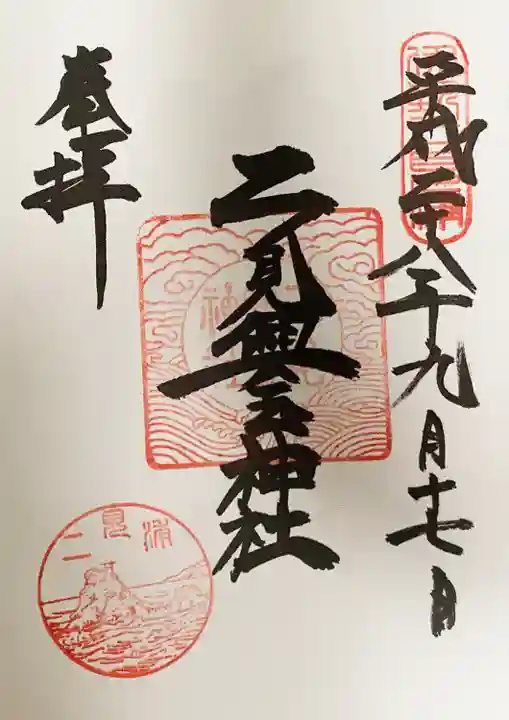 平成二十八年九月十七日
二見興玉神社
奉拝
二見浦